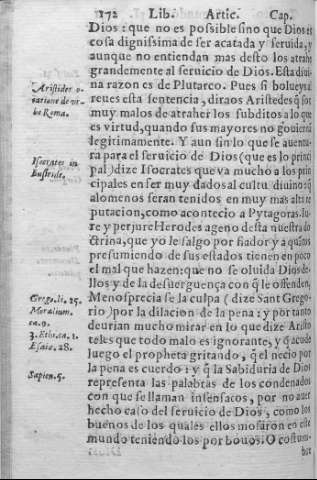 172 Lib. Artic. Cap.
Dios: que no es possible sino que Dios es
cosa dignissima de ser acatada y seruida, y
aunque no entiendan mas desto los atrahe
grandemente al seruicio de Dios. Esta diui
na razon es de Plutarco. Pues si bolueys al
reues esta sentencia, diraos Aristedes q̃ son
muy malos de atraher los subditos a lo que
es virtud, quando sus mayores no gouiernã
legitimamente. Y aun sin lo que se auentu-
ra para el seruicio de Dios (que es lo princi
pal) dize Isocrates que va mucho a los prin
cipales en ser muy dados al cultu diuino: q̃
alomenos seran tenidos en muy mas alta re
putacion, como acontecio a Pytagoras. Iu-
re y perjure Herodes ageno desta nuestra do
ctrina, que yo le salgo por fiador y a quãtos
presumiendo de sus estados tienen en poco
el mal que hazen: que no se oluida Dios de-
llos y de la desuerguença con q̃ le offenden.
Menosprecia se la culpa (dize Sant Grego-
rio) por la dilacion de la pena: y por tanto
deurian mucho mirar en lo que dize Aristo
teles que todo malo es ignorante, y q̃ acude
luego el propheta gritando, q̃ el necio por
la pena es cuerdo: y q̃ la Sabiduria de Dios
representa las palabras de los condenados
con que se llaman insensatos, por no auer
hecho caso del seruicio de Dios, como los
buenos de los quales ellos mofaron en este
mundo teniendo los por bouos. O costum-
bre
Aristides o-
ratione de vr-
be Roma.
Isocrates in
Busiride.
Grego. li. 25.
Moralium.
ca. 9.
3. Ethi. ca. 1.
Esaiæ. 28.
Sapien. 5.